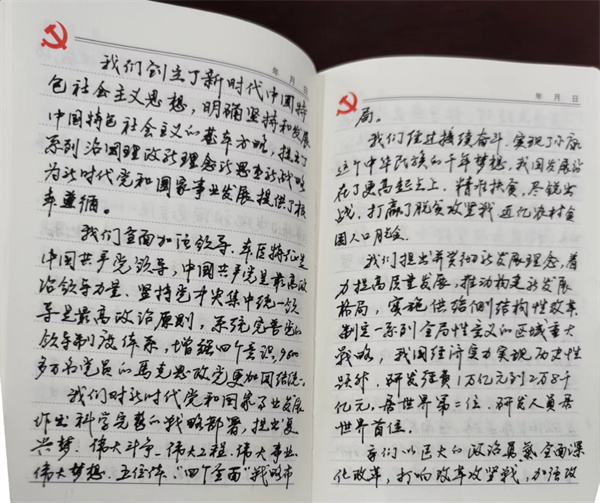 年 月 日
我们创立了新时代中国特
色社会主义思想，明确坚持和发展
中国特色社会主义的基本方略，提出了
系列治国理政新理念新思想新战略
为新时代党和国家事业发展提供了根
本遵循。
我们全面加强领导，本质特征是
中国共产党领导，中国共产党是最高政
治领导力量，坚持党中央集中统一领
导是最高政治原则，系统完善党的
领导制度体系，增强四个意识，9600
多万名党员的马克思政党更加团结统一。
我们对新时代党和国家事业发展
作出科学完整的战略部署，提出复
兴梦，伟大斗争、伟大工程、伟大事业
伟大梦想，五位一体、"四个全面"战略布
年 月 日
局。
我们经过接续奋斗，实现了小康
这个中华民族的千年梦想，我国发展站
在了更高起点上，精准扶贫，尽锐出
战，打赢了脱贫攻坚战，近亿农村贫
困人口脱贫。
我们提出并贯彻新发展理念，着
力推高质量发展，推动构建新发展
格局，实施供给侧结构性改革
制定一系列全局性意义的区域重大
战略，我国经济实力实现历史性
跃升，研发经费1万亿元到2万8千
亿元，居世界第二位，研发人员居
世界首位。
我们以巨大的政治勇气全面深
化改革，打响改革攻坚战，加强改